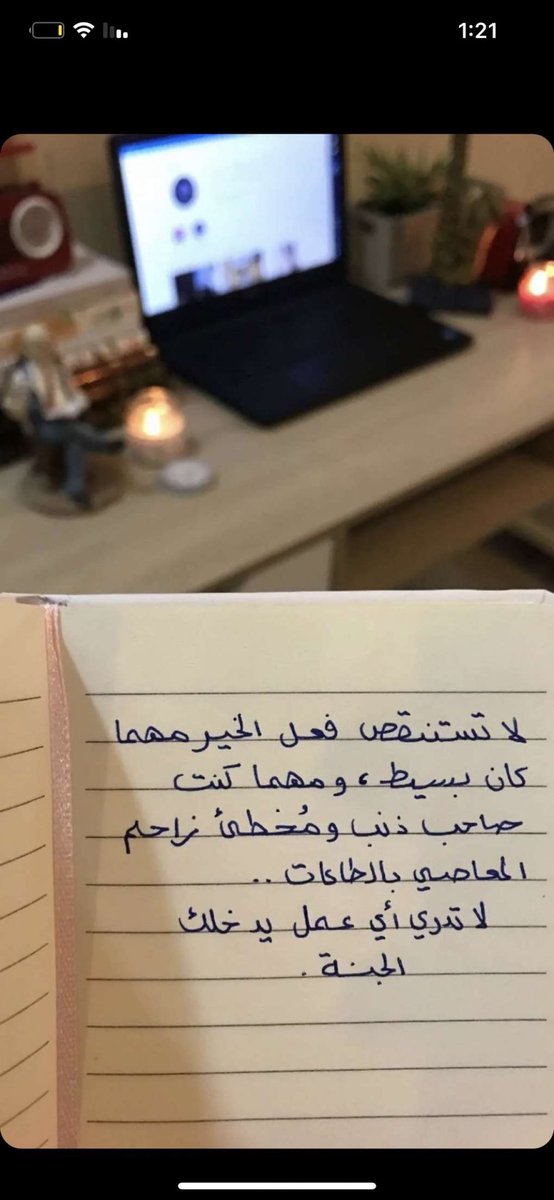 1:21
لا تستنقص فعل الخير مهما
كان بسيط، ومهما كنت
صاحب ذنب ومُخطئ زاحم
المعاصي بالطاعات ..
لا تدري أي عمل يدخلك
الجنة .